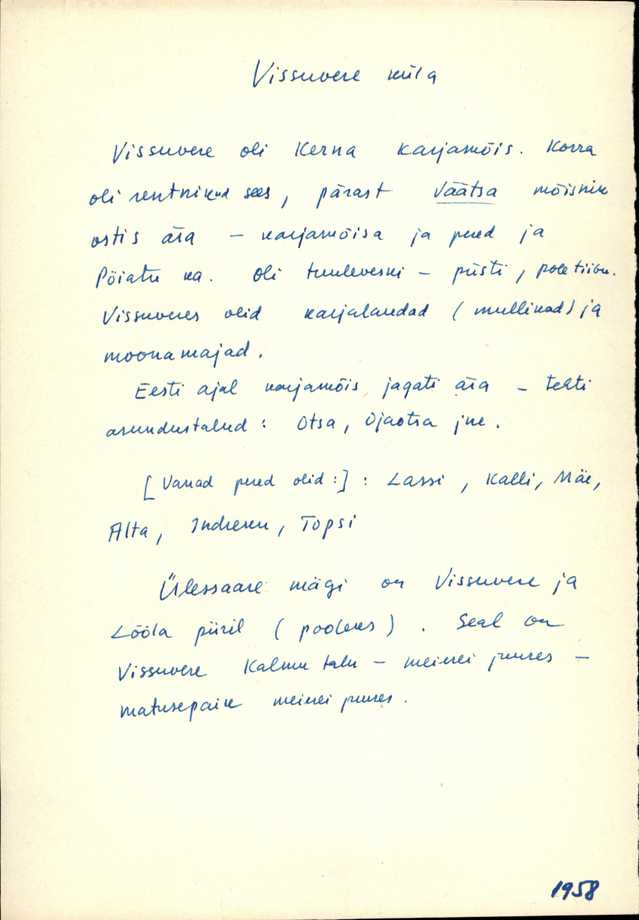 Vissuvere küla
Vissuvere oli Kerna karjamõis. Korra
oli rentnikud sees, pärast Väätsa mõisnik
ostis ära – karjamõisa ja pered ja
Põiatu ka. Oli tuuleveski – püsti, pole tiibu.
Vissuveres olid karjalaudad (mullikad) ja
moonamajad.
Eesti ajal karjamõis jagati ära – tehti
asundustalud: Otsa, Ojaotsa jne.
[Vanad pered olid:]: Lassi, Kalli, Mäe,
Alta, Indreku, Topsi
Ülessaare mägi on Vissuvere ja
Lõõla piiril (pooleks). Seal on
Vissuvere Kalmu talu – meierei juures –
matusepaik meierei juures.
1958